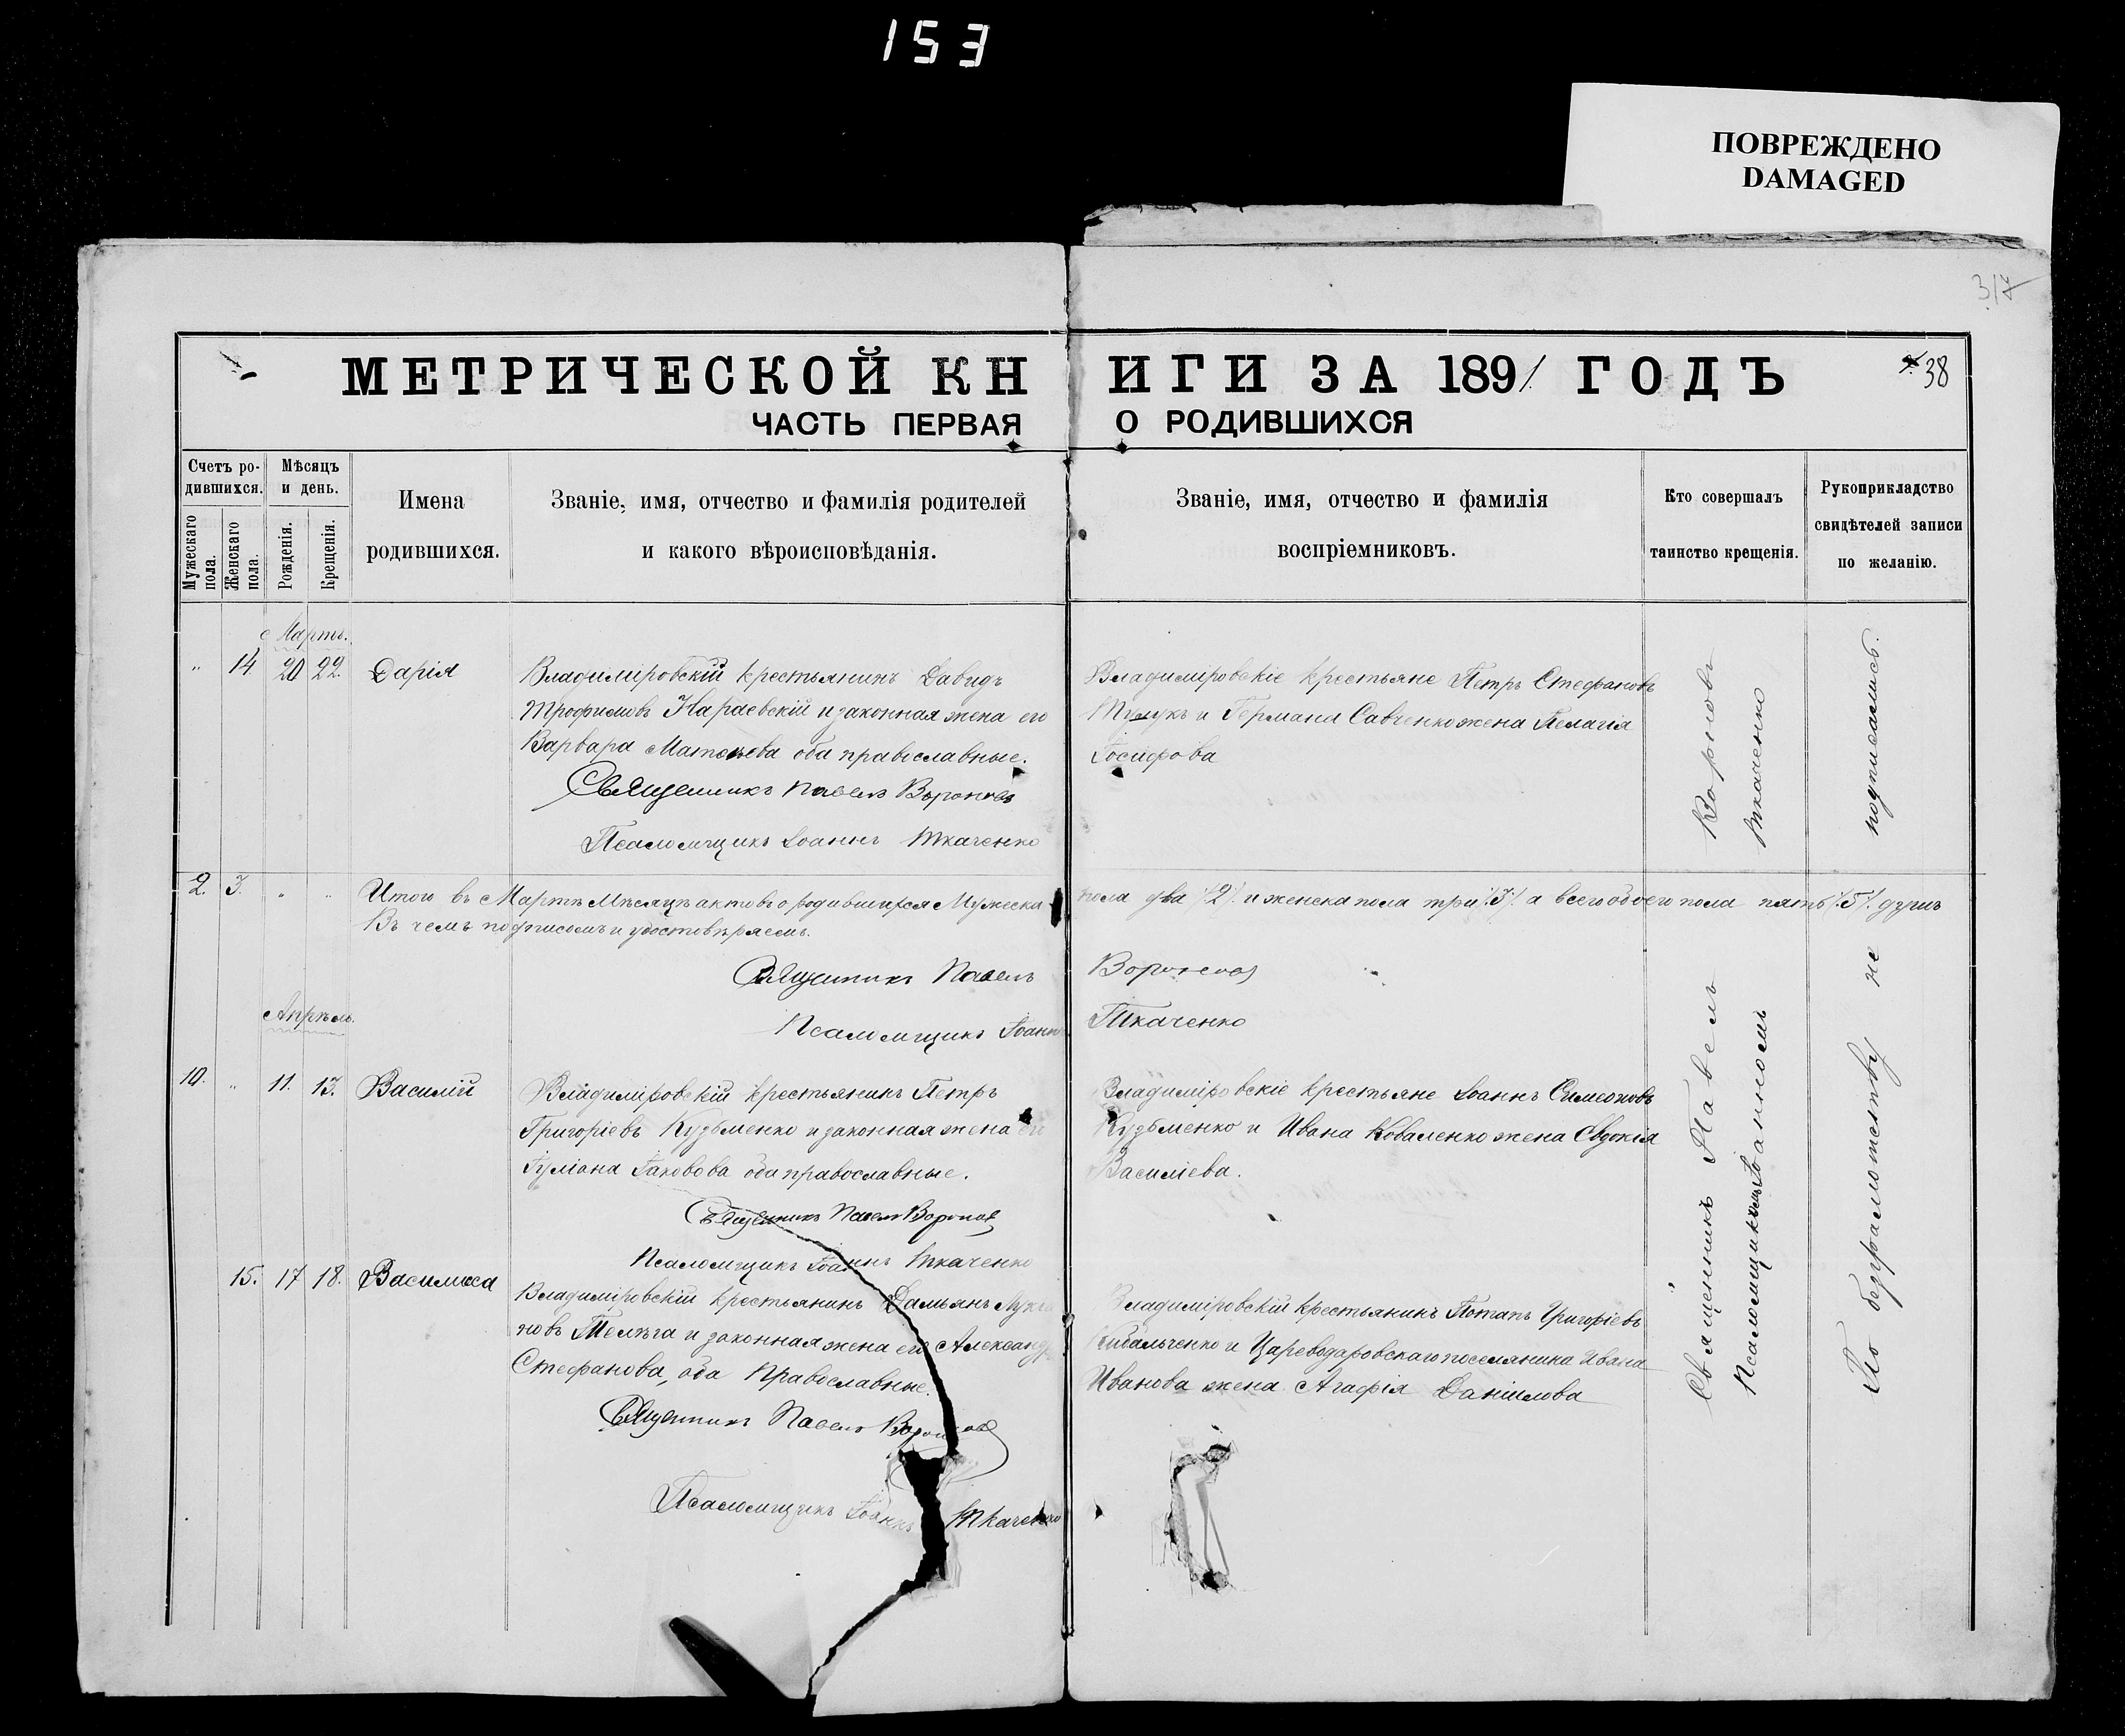 153
ПОВРЕЖДЕНО
DAMAGED
317
МЕТРИЧЕСКОЙ КНИГИ ЗА 1891 ГОДЪ
38
ЧАСТЬ ПЕРВАЯ О РОДИВШИХСЯ
Счетъ ро-
дившихся.
Мужескаго пола.
Женскаго пола.
Мѣсяцъ
и день.
Рожденія.
Крещенія.
Имена
родившихся.
Званіе, имя, отчество и фамилія родителей
и какого вѣроисповѣданія.
Званіе, имя, отчество и фамилія
воспріемниковъ.
Кто совершалъ
таинство крещенія.
Рукоприкладство
свидѣтелей записи
по желанію.
Мартъ.
" 14 20 22. Дарія
Владиміровскій крестьянинъ Давидъ
Трофимовъ Караевскій и законная жена его
Варвара Матѳеева оба православные.
Священникъ Павелъ Вороновъ
Псаломщикъ Іоаннъ Ткаченко
Владиміровскіе крестьяне Петръ Стефановъ
и Германа Савченко жена Пелагія
Іосифова
2. 3. " " Итого въ Мартѣ Мѣсяцѣ актовъ о родившихся Мужеска пола два /2/. и женска пола три /3/ а всего обоего пола пять /5/. душъ
Въ чемъ подписомъ и удостовѣряемъ.
Священникъ Павелъ Вороновъ
Псаломщикъ Іоаннъ Ткаченко
Апрѣль.
10. " 11. 13. Василій
Владиміровскій крестьянинъ Петръ
Григоріевъ Кузьменко и законная жена его
Іуліана Іаковова оба православные.
Священникъ Павелъ Вороновъ
Псаломщикъ Іоаннъ Ткаченко
Владиміровскіе крестьяне Іоаннъ Симеоновъ
Кузьменко и Ивана Коваленко жена Евдокія
Василіева.
15. 17 18. Василиса
Владиміровскій крестьянинъ Дамьянъ
новъ Телѣга и законная жена его Александра
Стефанова, оба Православные.
Священникъ Павелъ Вороновъ
Псаломщикъ Іоаннъ Ткаченко
Владиміровскій крестьянинъ Потапъ Григоріевъ
Кибальченко и Цареводаровскаго поселянина Ивана
Иванова жена Агафія Даніилова
Священникъ Павелъ Вороновъ
Псаломщикомъ Іоанномъ Ткаченко
По безграмотству не подписались.